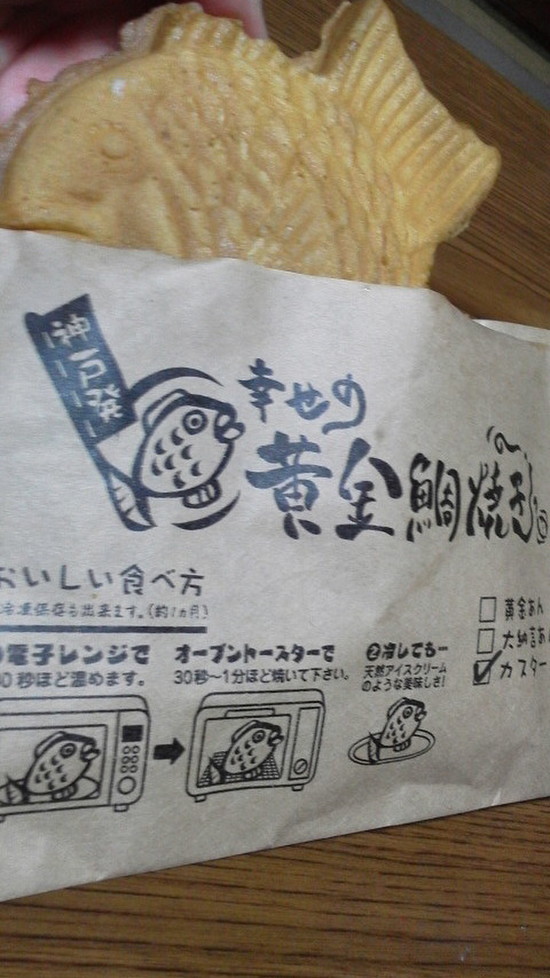 神戸発
幸せの
黄金鯛焼き
おいしい食べ方
冷凍保存も出来ます。(約1ヵ月)
電子レンジで
0秒ほど温めます。
オーブントースターで
30秒〜1分ほど焼いて下さい。
❷冷しても…
天然アイスクリーム
のような美味しさ!
黄金あん
大納言あ
カスター